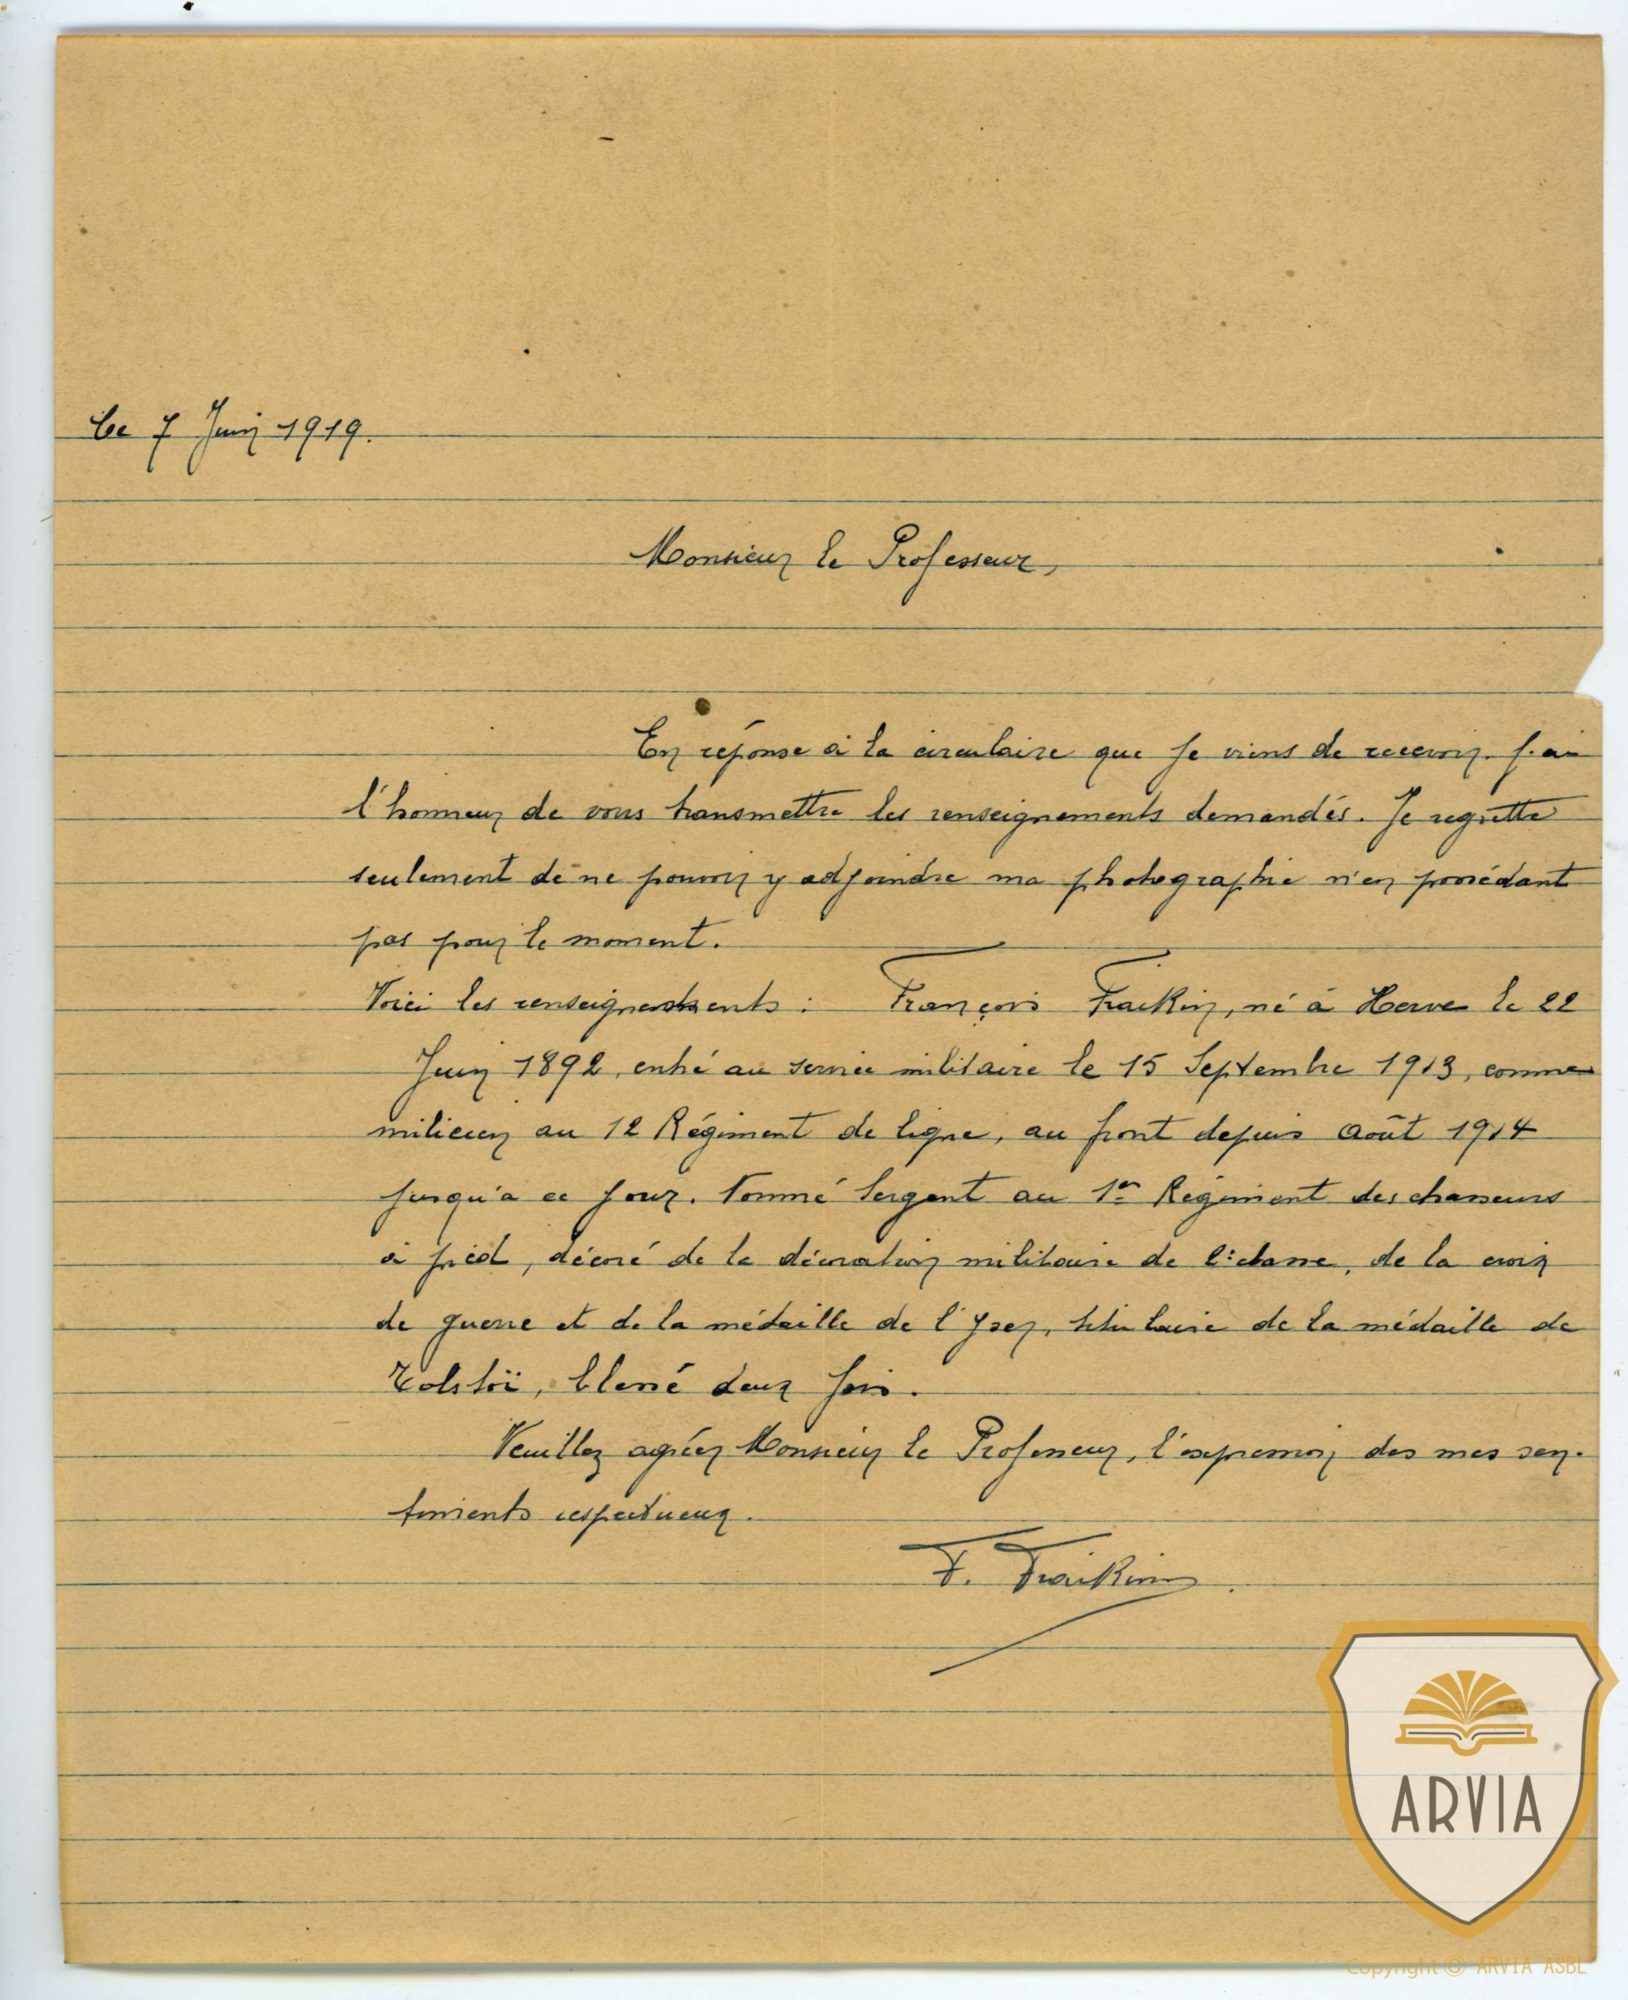 Le 7 Juin 1919.
Monsieur le Professeur,
En réponse à la circulaire que je viens de recevoir. j'ai
l'honneur de vous transmettre les renseignements demandés. Je regrette
seulement de ne pouvoir y adjoindre ma photographie n'en possédant
pas pour le moment.
Voici les renseignements : François Fraikin, né à Herve le 22
Juin 1892, entré au service militaire le 15 Septembre 1913, comme
milicien au 12 Régiment de ligne, au front depuis Août 1914
jusqu'a ce jour. Nommé Sergent au 1er Régiment des chasseurs
à pied, décoré de la décoration militaire de 2e classe, de la croix
de guerre et de la médaille de l'Yser, titulaire de la médaille de
Tolstoï, blessé deux fois.
Veuillez agréer Monsieur le Professeur, l'expression des mes sen-
timents respectueux.
F. Fraikin
ARVIA
Copyright © ARVIA ASBL